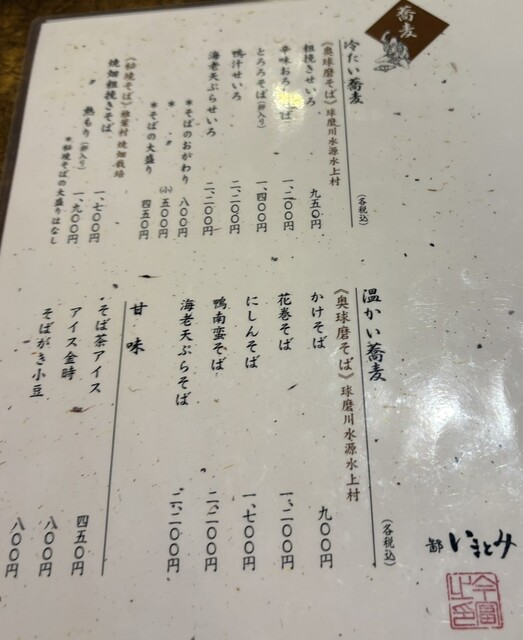 蕎麦
冷たい蕎麦 (各税込)
《奥球磨そば》球磨川水源水上村
粗挽きせいろ 九五〇円
辛味おろしそば 一、二〇〇円
とろろそば(卵入り) 一、四〇〇円
鴨汁せいろ 二、二〇〇円
海老天ぷらせいろ 二、二〇〇円
*そばのおかわり 八〇〇円
*〃 (小) 五〇〇円
*そばの大盛り 四五〇円
《秘境そば》椎葉村 焼畑栽培
焼畑粗挽きそば 一、七〇〇円
熱もり(卵入り) 一、九〇〇円
*秘境そばの大盛りはなし
温かい蕎麦 (各税込)
《奥球磨そば》球磨川水源水上村
かけそば 九〇〇円
花巻そば 一、二〇〇円
にしんそば 一、七〇〇円
鴨南蛮そば 二、二〇〇円
海老天ぷらそば 二、二〇〇円
甘味
そば茶アイス 四五〇円
アイス金時 八〇〇円
そばがき小豆 八〇〇円
いまとみ